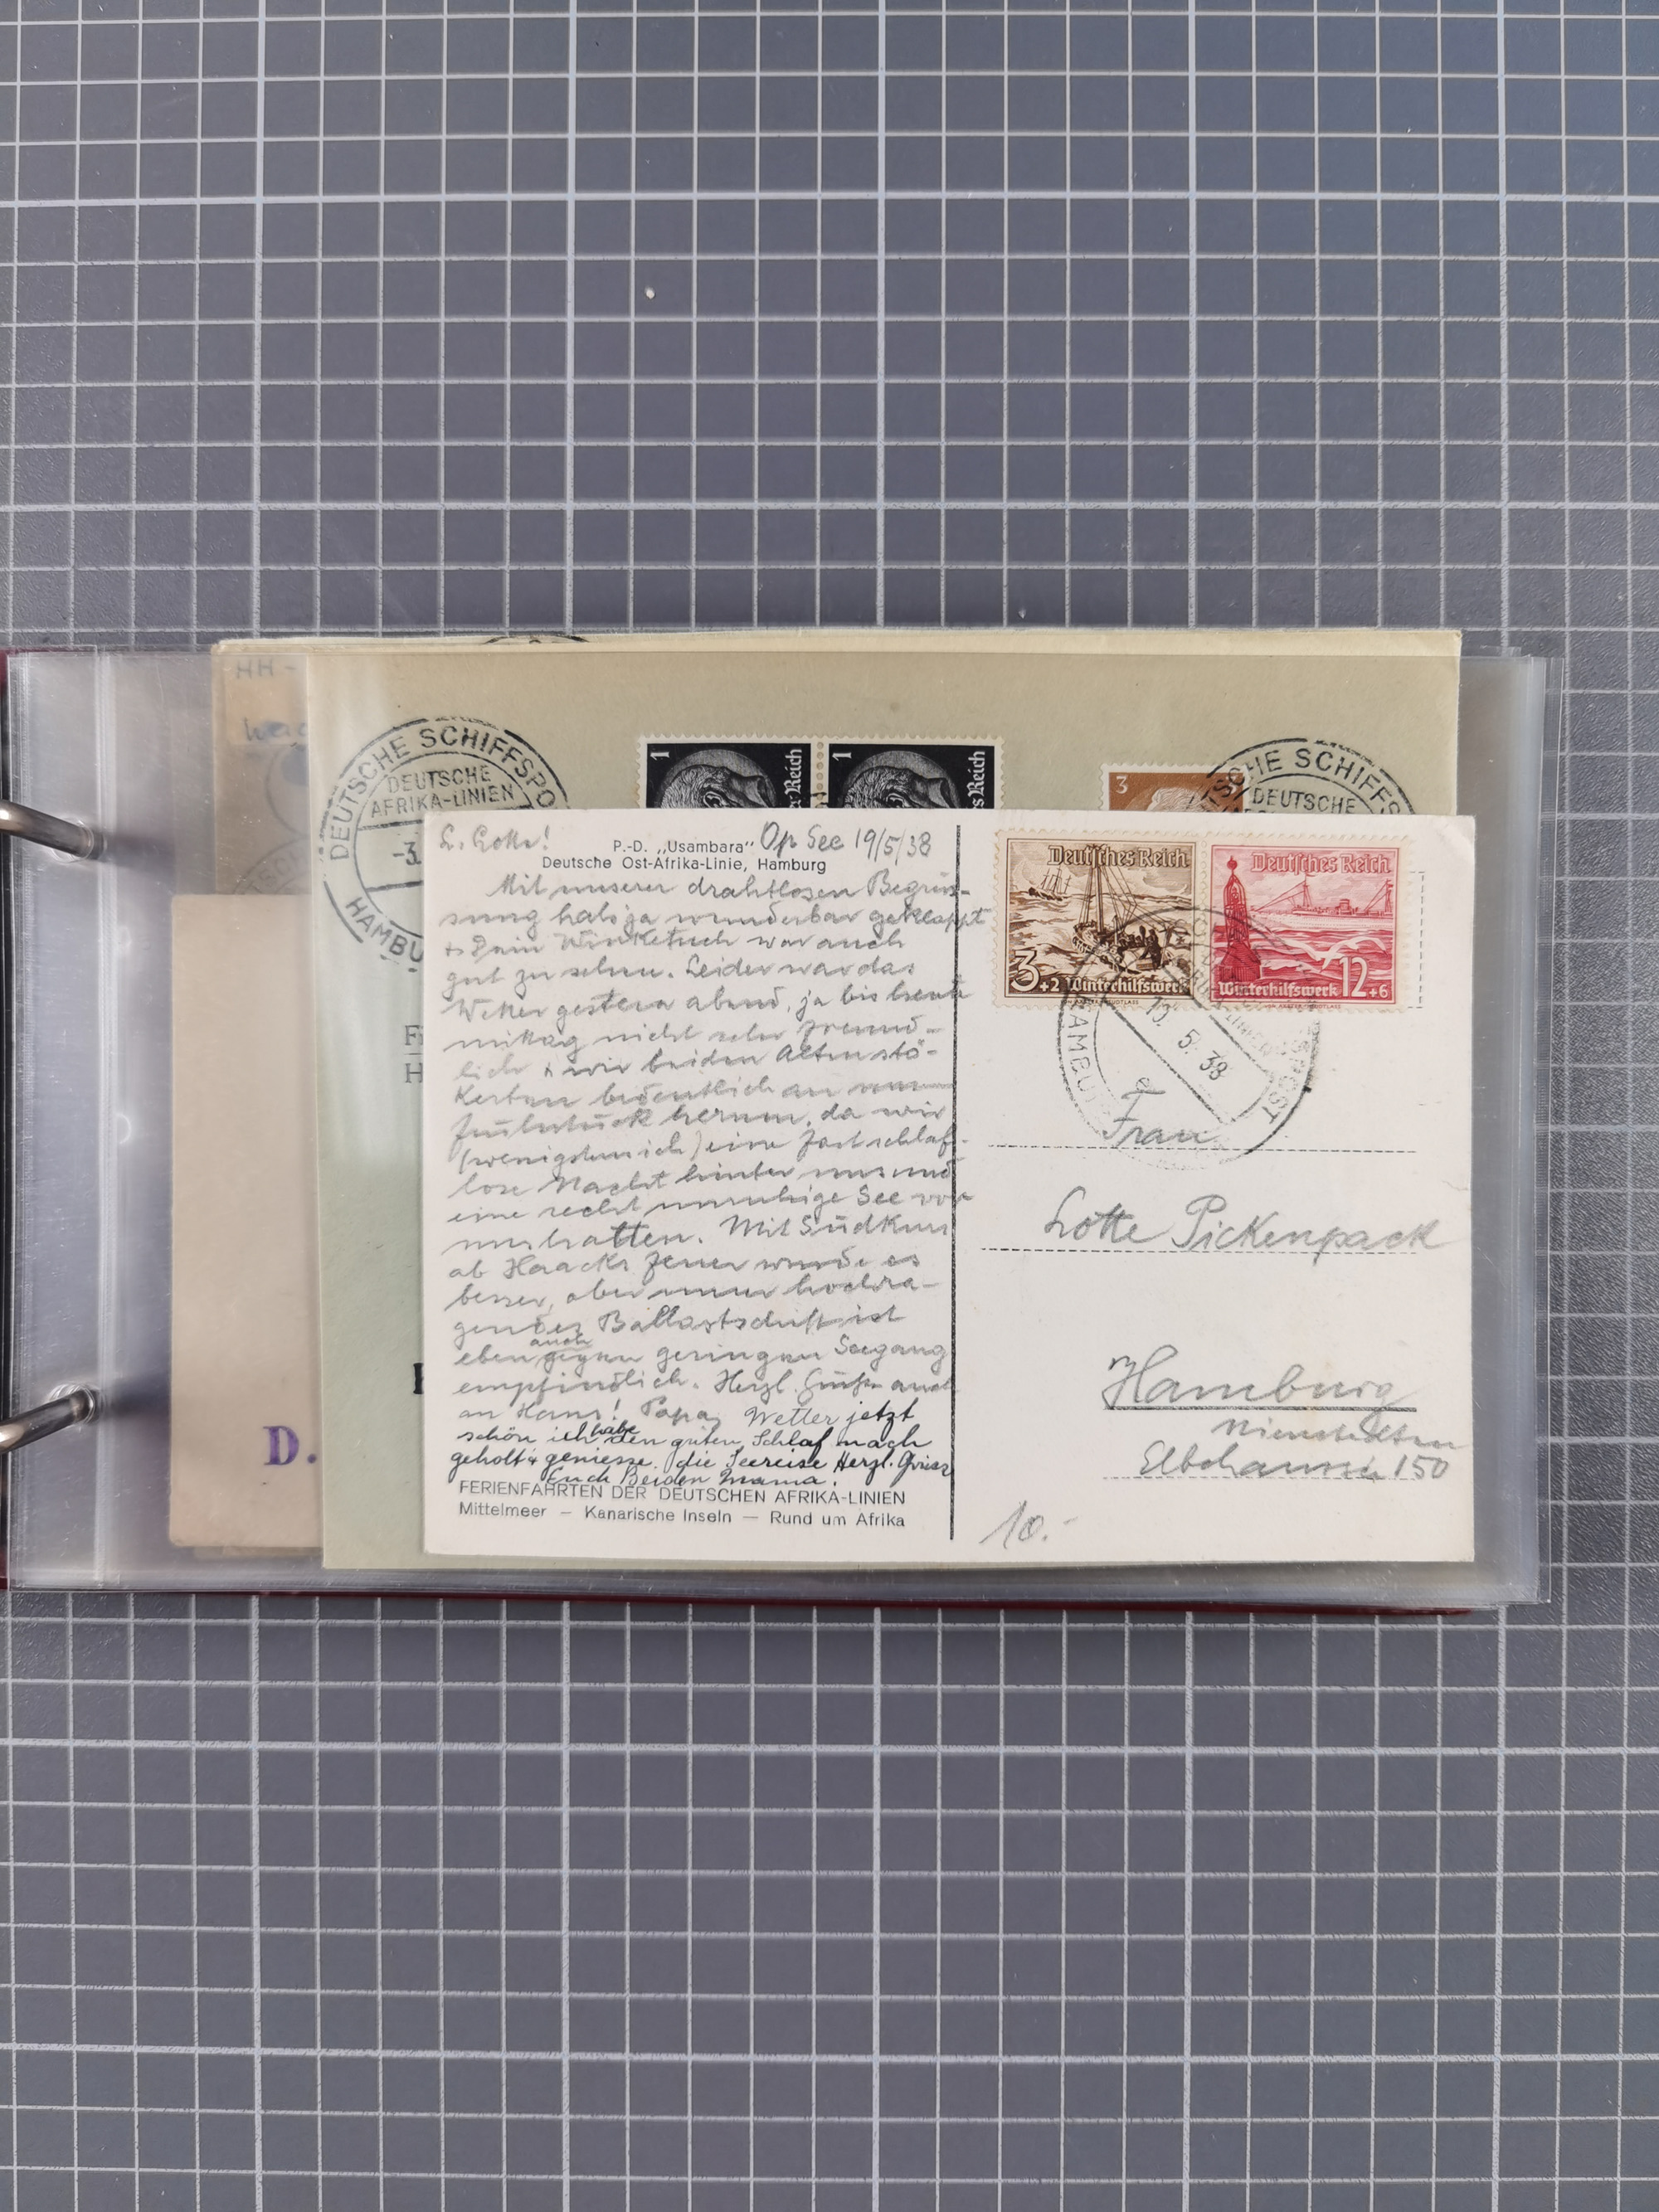 HH -
DEUTSCHE SCHIFFSPO
DEUTSCHE
AFRIKA-LINIEN
-3.
HAMBU
1
s Reich
1
s Reich
3
TSCHE SCHIFFS
DEUTSCHE
F
H
D.
L. Lotte!
P.-D. „Usambara" Op See 19/5/38
Deutsche Ost-Afrika-Linie, Hamburg
Mit unserer drahtlosen Begrüs-
sung hats ja wunderbar geklappt
+ Dein Winketuch war auch
gut zu sehen. Leider war das
Wetter gestern abend, ja bis heute
mittag nicht sehr freund-
lich + wir beiden Alten stö-
kerten bedenklich an
frühstück herum, da wir
(wenigstens ich) eine fast schlaf-
lose Nacht hinter uns und
eine recht unruhige See vor
uns hatten. Mit Südkurs
ab Haacks Feuer wurde es
besser, aber unser hochra-
gendes Ballastschiff ist
eben auch gegen geringen Seegang
empfindlich. Herzl. Grüße auch
an Hans! Papa, Wetter jetzt
schön ich habe den guten Schlaf nach
geholt + geniesse die Seereise Herzl. Grüsse
Euch Beiden Mama.
FERIENFAHRTEN DER DEUTSCHEN AFRIKA-LINIEN
Mittelmeer — Kanarische Inseln — Rund um Afrika
Deutsches Reich
3+2 Winterhilfswerk
Deutsches Reich
Winterhilfswerk 12+6
5. 38
HAMBU
e
Frau
Lotte Pickenpack
Hamburg
Nienstedten
Elbchaussee 150
10.-